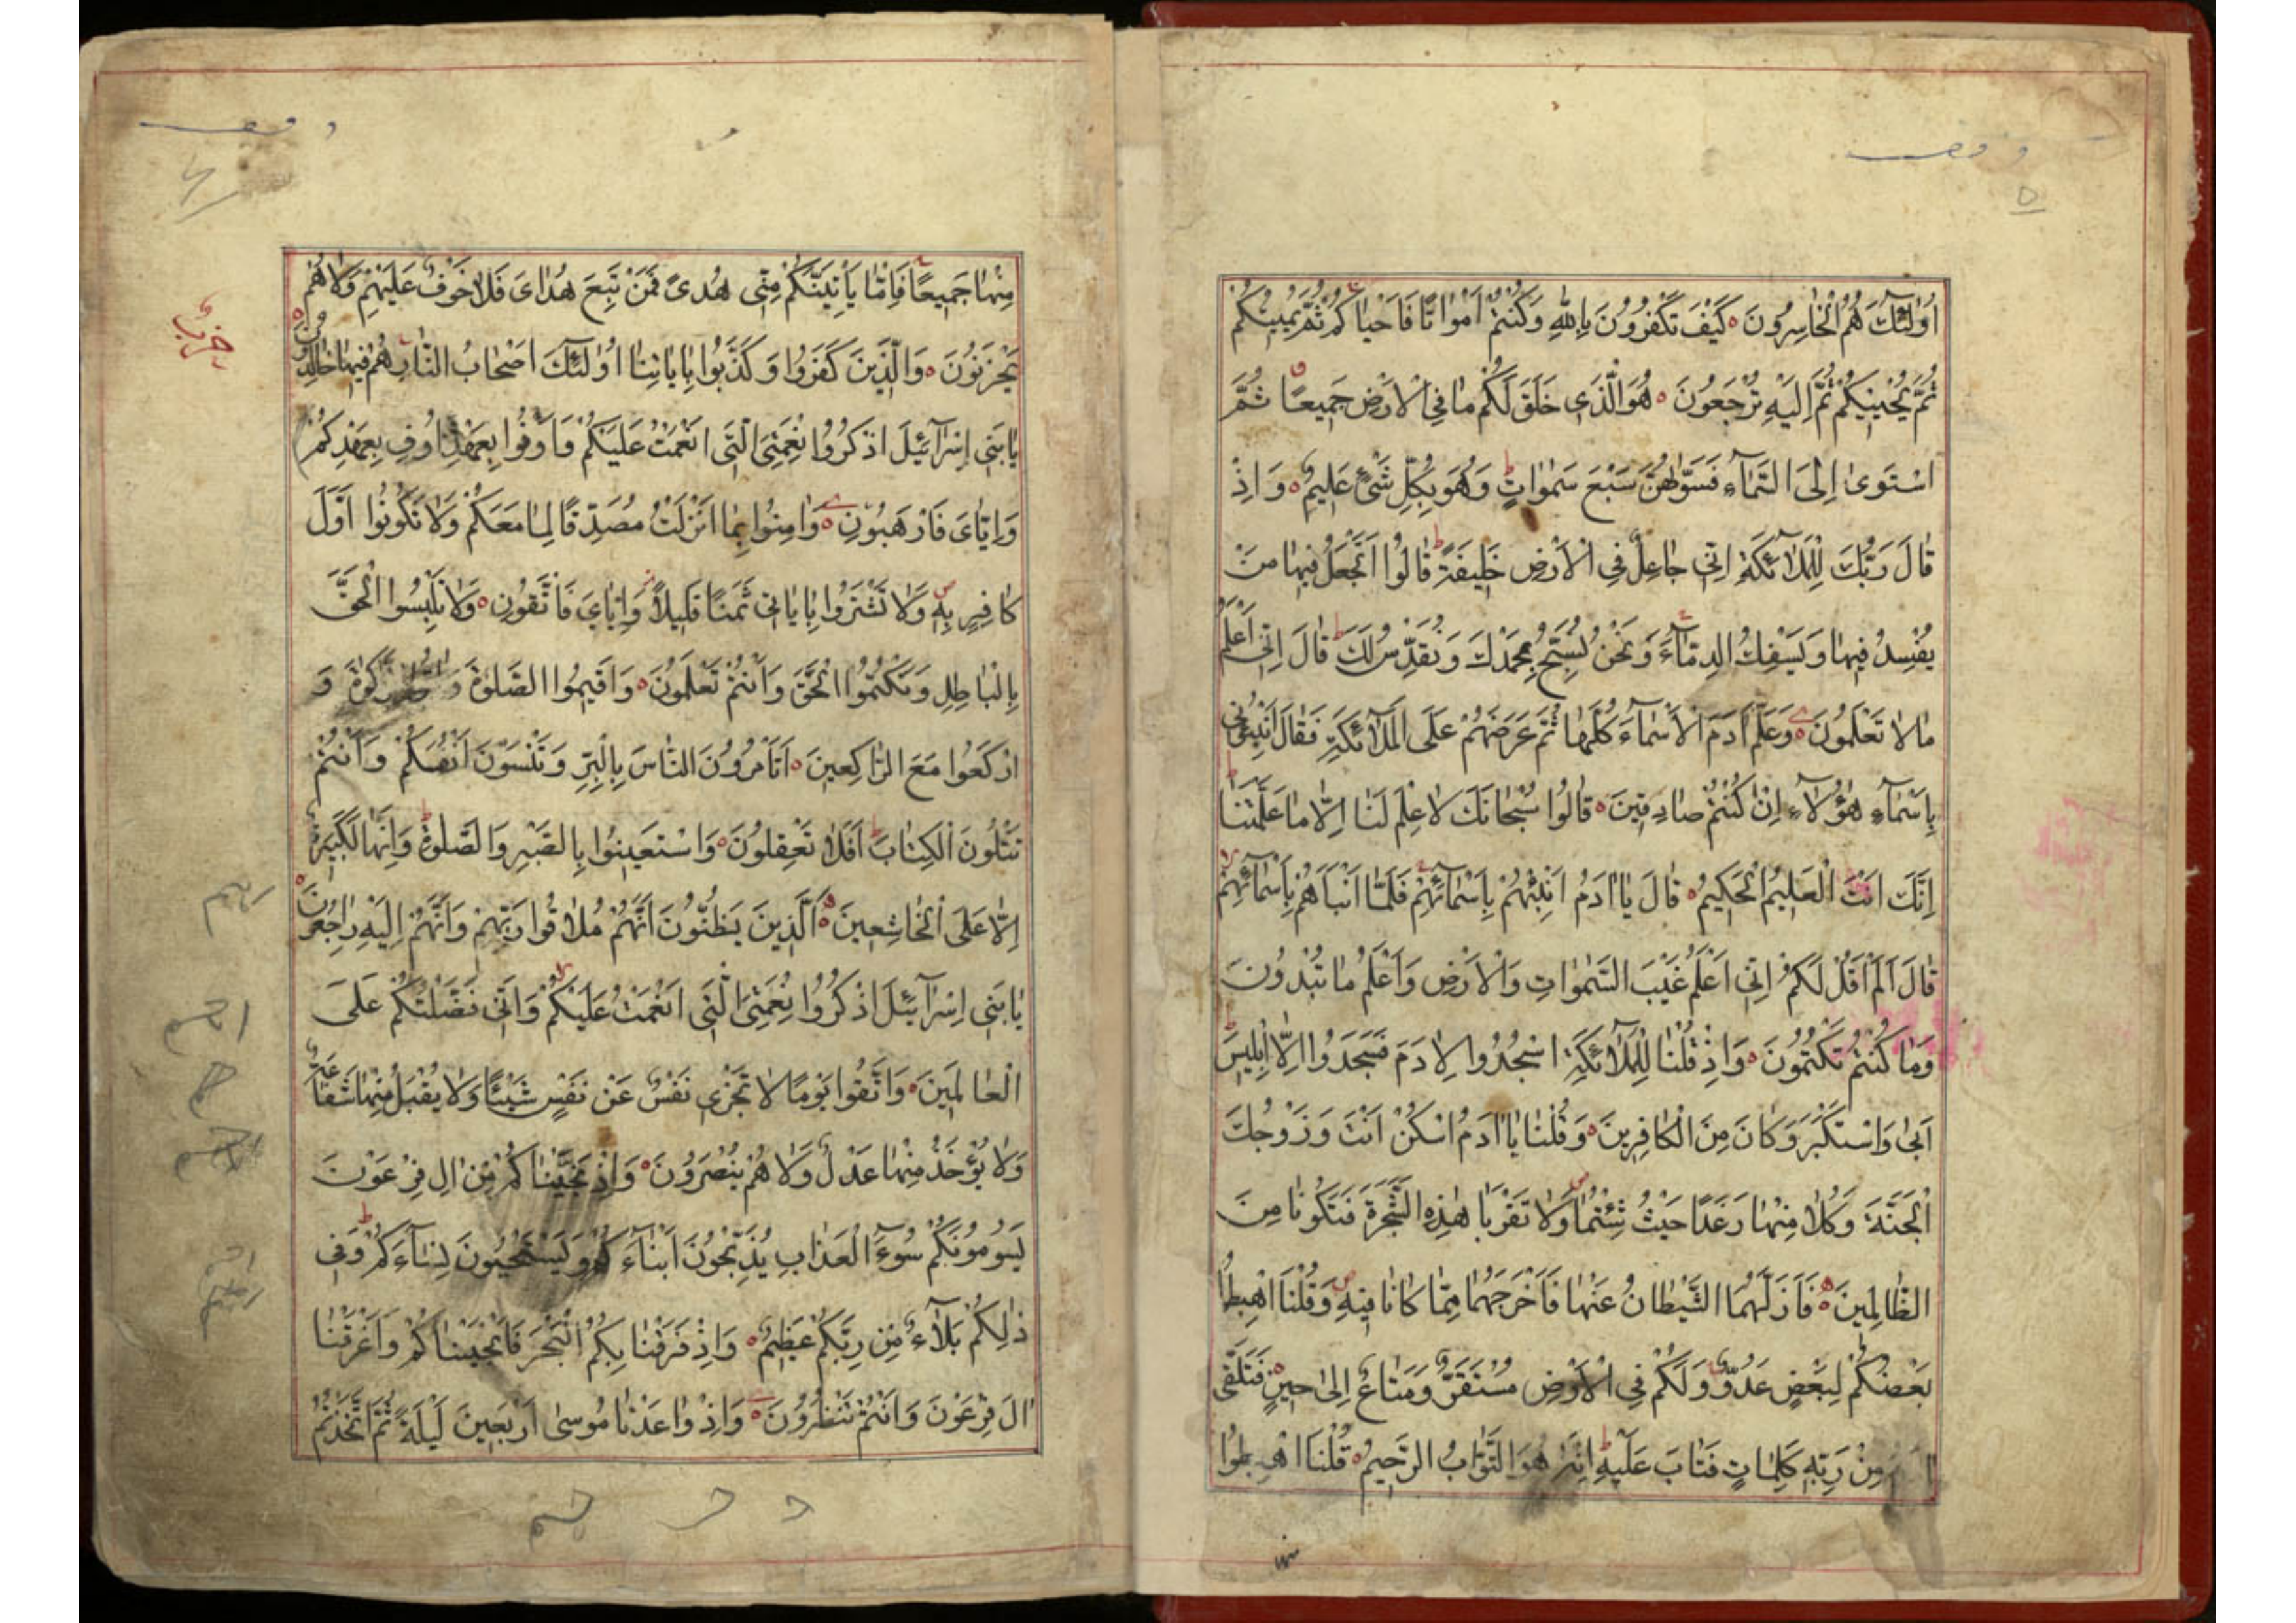 وقف
۵
اُولٰئِكَ هُمُ الْخَاسِرُونَ ۝ كَيْفَ تَكْفُرُونَ بِاللّٰهِ وَكُنْتُمْ اَمْوَاتًا فَاَحْيَاكُمْ ثُمَّ يُمِيتُكُمْ
ثُمَّ يُحْيِيكُمْ ثُمَّ اِلَيْهِ تُرْجَعُونَ ۝ هُوَ الَّذِى خَلَقَ لَكُمْ مَا فِى الْاَرْضِ جَمِيعًا ثُمَّ
اسْتَوىٰ اِلَى السَّمَآءِ فَسَوّٰيهُنَّ سَبْعَ سَمٰوَاتٍ وَهُوَ بِكُلِّ شَىْءٍ عَلِيمٌ ۝ وَاِذْ
قَالَ رَبُّكَ لِلْمَلٰٓائِكَةِ اِنِّى جَاعِلٌ فِى الْاَرْضِ خَلِيفَةً قَالُوا اَتَجْعَلُ فِيهَا مَنْ
يُفْسِدُ فِيهَا وَيَسْفِكُ الدِّمَآءَ وَنَحْنُ نُسَبِّحُ بِحَمْدِكَ وَنُقَدِّسُ لَكَ قَالَ اِنِّى اَعْلَمُ
مَا لَا تَعْلَمُونَ ۝ وَعَلَّمَ اٰدَمَ الْاَسْمَآءَ كُلَّهَا ثُمَّ عَرَضَهُمْ عَلَى الْمَلٰٓائِكَةِ فَقَالَ اَنْبِئُونِى
بِاَسْمَآءِ هٰؤُلَآءِ اِنْ كُنْتُمْ صَادِقِينَ ۝ قَالُوا سُبْحَانَكَ لَا عِلْمَ لَنَا اِلَّا مَا عَلَّمْتَنَا
اِنَّكَ اَنْتَ الْعَلِيمُ الْحَكِيمُ ۝ قَالَ يَا اٰدَمُ اَنْبِئْهُمْ بِاَسْمَآئِهِمْ فَلَمَّا اَنْبَاَهُمْ بِاَسْمَآئِهِمْ
قَالَ اَلَمْ اَقُلْ لَكُمْ اِنِّى اَعْلَمُ غَيْبَ السَّمٰوَاتِ وَالْاَرْضِ وَاَعْلَمُ مَا تُبْدُونَ
وَمَا كُنْتُمْ تَكْتُمُونَ ۝ وَاِذْ قُلْنَا لِلْمَلٰٓائِكَةِ اسْجُدُوا لِاٰدَمَ فَسَجَدُوا اِلَّا اِبْلِيسَ
اَبىٰ وَاسْتَكْبَرَ وَكَانَ مِنَ الْكَافِرِينَ ۝ وَقُلْنَا يَا اٰدَمُ اسْكُنْ اَنْتَ وَزَوْجُكَ
الْجَنَّةَ وَكُلَا مِنْهَا رَغَدًا حَيْثُ شِئْتُمَا وَلَا تَقْرَبَا هٰذِهِ الشَّجَرَةَ فَتَكُونَا مِنَ
الظَّالِمِينَ ۝ فَاَزَلَّهُمَا الشَّيْطَانُ عَنْهَا فَاَخْرَجَهُمَا مِمَّا كَانَا فِيهِ وَقُلْنَا اهْبِطُوا
بَعْضُكُمْ لِبَعْضٍ عَدُوٌّ وَلَكُمْ فِى الْاَرْضِ مُسْتَقَرٌّ وَمَتَاعٌ اِلىٰ حِينٍ فَتَلَقّٰى
مِنْ رَبِّهِ كَلِمَاتٍ فَتَابَ عَلَيْهِ اِنَّهُ هُوَ التَّوَّابُ الرَّحِيمُ ۝ قُلْنَا اهْبِطُوا
منها
وقف
مِنْهَا جَمِيعًا فَاِمَّا يَاْتِيَنَّكُمْ مِنِّى هُدىً فَمَنْ تَبِعَ هُدَاىَ فَلَا خَوْفٌ عَلَيْهِمْ وَلَا هُمْ
يَحْزَنُونَ ۝ وَالَّذِينَ كَفَرُوا وَكَذَّبُوا بِاٰيَاتِنَا اُولٰئِكَ اَصْحَابُ النَّارِ هُمْ فِيهَا خَالِدُونَ ۝
يَا بَنِى اِسْرَآئِيلَ اذْكُرُوا نِعْمَتِىَ الَّتِى اَنْعَمْتُ عَلَيْكُمْ وَاَوْفُوا بِعَهْدِى اُوفِ بِعَهْدِكُمْ
وَاِيَّاىَ فَارْهَبُونِ ۝ وَاٰمِنُوا بِمَا اَنْزَلْتُ مُصَدِّقًا لِمَا مَعَكُمْ وَلَا تَكُونُوا اَوَّلَ
كَافِرٍ بِهِ وَلَا تَشْتَرُوا بِاٰيَاتِى ثَمَنًا قَلِيلًا وَاِيَّاىَ فَاتَّقُونِ ۝ وَلَا تَلْبِسُوا الْحَقَّ
بِالْبَاطِلِ وَتَكْتُمُوا الْحَقَّ وَاَنْتُمْ تَعْلَمُونَ ۝ وَاَقِيمُوا الصَّلٰوةَ وَاٰتُوا الزَّكٰوةَ وَ
ارْكَعُوا مَعَ الرَّاكِعِينَ ۝ اَتَاْمُرُونَ النَّاسَ بِالْبِرِّ وَتَنْسَوْنَ اَنْفُسَكُمْ وَاَنْتُمْ
تَتْلُونَ الْكِتَابَ اَفَلَا تَعْقِلُونَ ۝ وَاسْتَعِينُوا بِالصَّبْرِ وَالصَّلٰوةِ وَاِنَّهَا لَكَبِيرَةٌ
اِلَّا عَلَى الْخَاشِعِينَ ۝ اَلَّذِينَ يَظُنُّونَ اَنَّهُمْ مُلَاقُوا رَبِّهِمْ وَاَنَّهُمْ اِلَيْهِ رَاجِعُونَ ۝
يَا بَنِى اِسْرَآئِيلَ اذْكُرُوا نِعْمَتِىَ الَّتِى اَنْعَمْتُ عَلَيْكُمْ وَاَنِّى فَضَّلْتُكُمْ عَلَى
الْعَالَمِينَ ۝ وَاتَّقُوا يَوْمًا لَا تَجْزِى نَفْسٌ عَنْ نَفْسٍ شَيْئًا وَلَا يُقْبَلُ مِنْهَا شَفَاعَةٌ
وَلَا يُؤْخَذُ مِنْهَا عَدْلٌ وَلَا هُمْ يُنْصَرُونَ ۝ وَاِذْ نَجَّيْنَاكُمْ مِنْ اٰلِ فِرْعَوْنَ
يَسُومُونَكُمْ سُوٓءَ الْعَذَابِ يُذَبِّحُونَ اَبْنَآءَكُمْ وَيَسْتَحْيُونَ نِسَآءَكُمْ وَفِى
ذٰلِكُمْ بَلَآءٌ مِنْ رَبِّكُمْ عَظِيمٌ ۝ وَاِذْ فَرَقْنَا بِكُمُ الْبَحْرَ فَاَنْجَيْنَاكُمْ وَاَغْرَقْنَا
اٰلَ فِرْعَوْنَ وَاَنْتُمْ تَنْظُرُونَ ۝ وَاِذْ وَاعَدْنَا مُوسىٰ اَرْبَعِينَ لَيْلَةً ثُمَّ اتَّخَذْتُمُ